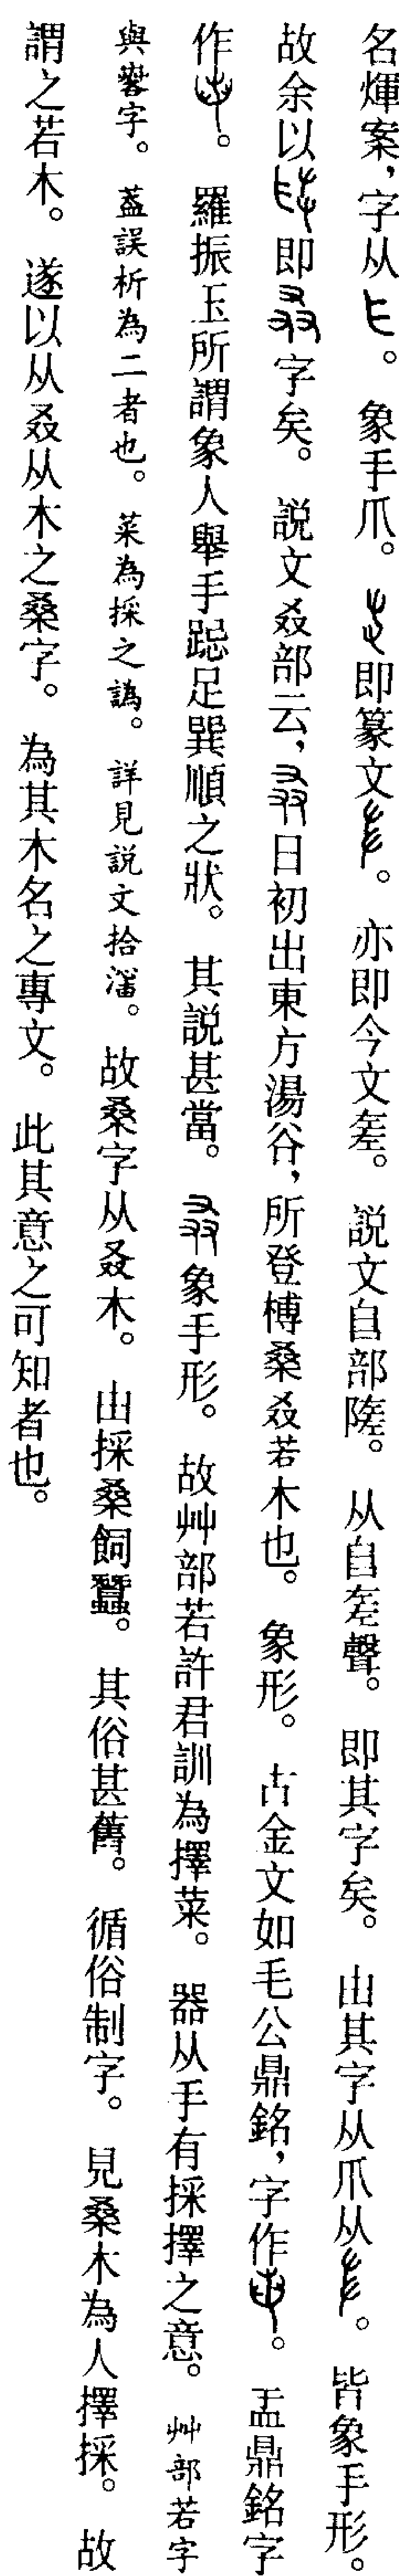 名煇案，字从。象手爪。即篆文。亦即今文𢀩。説文𨸏部隓。从𨸏𢀩聲。即其字矣。由其字从爪从。皆象手形。
故余以即字矣。説文叒部云，日初出東方湯谷，所登榑桑叒若木也。象形。古金文如毛公鼎銘，字作。盂鼎銘字
作。羅振玉所謂象人舉手跽足巽順之狀。其説甚當。象手形。故艸部若許君訓為擇菜。器从手有採擇之意。艸部若字
與字。葢誤析為二者也。菜為採之譌。詳見説文拾瀋。故桑字从叒木。由採桑飼蠶。其俗甚舊。循俗制字。見桑木為人擇採。故
謂之若木。遂以从叒从木之桑字。為其木名之專文。此其意之可知者也。